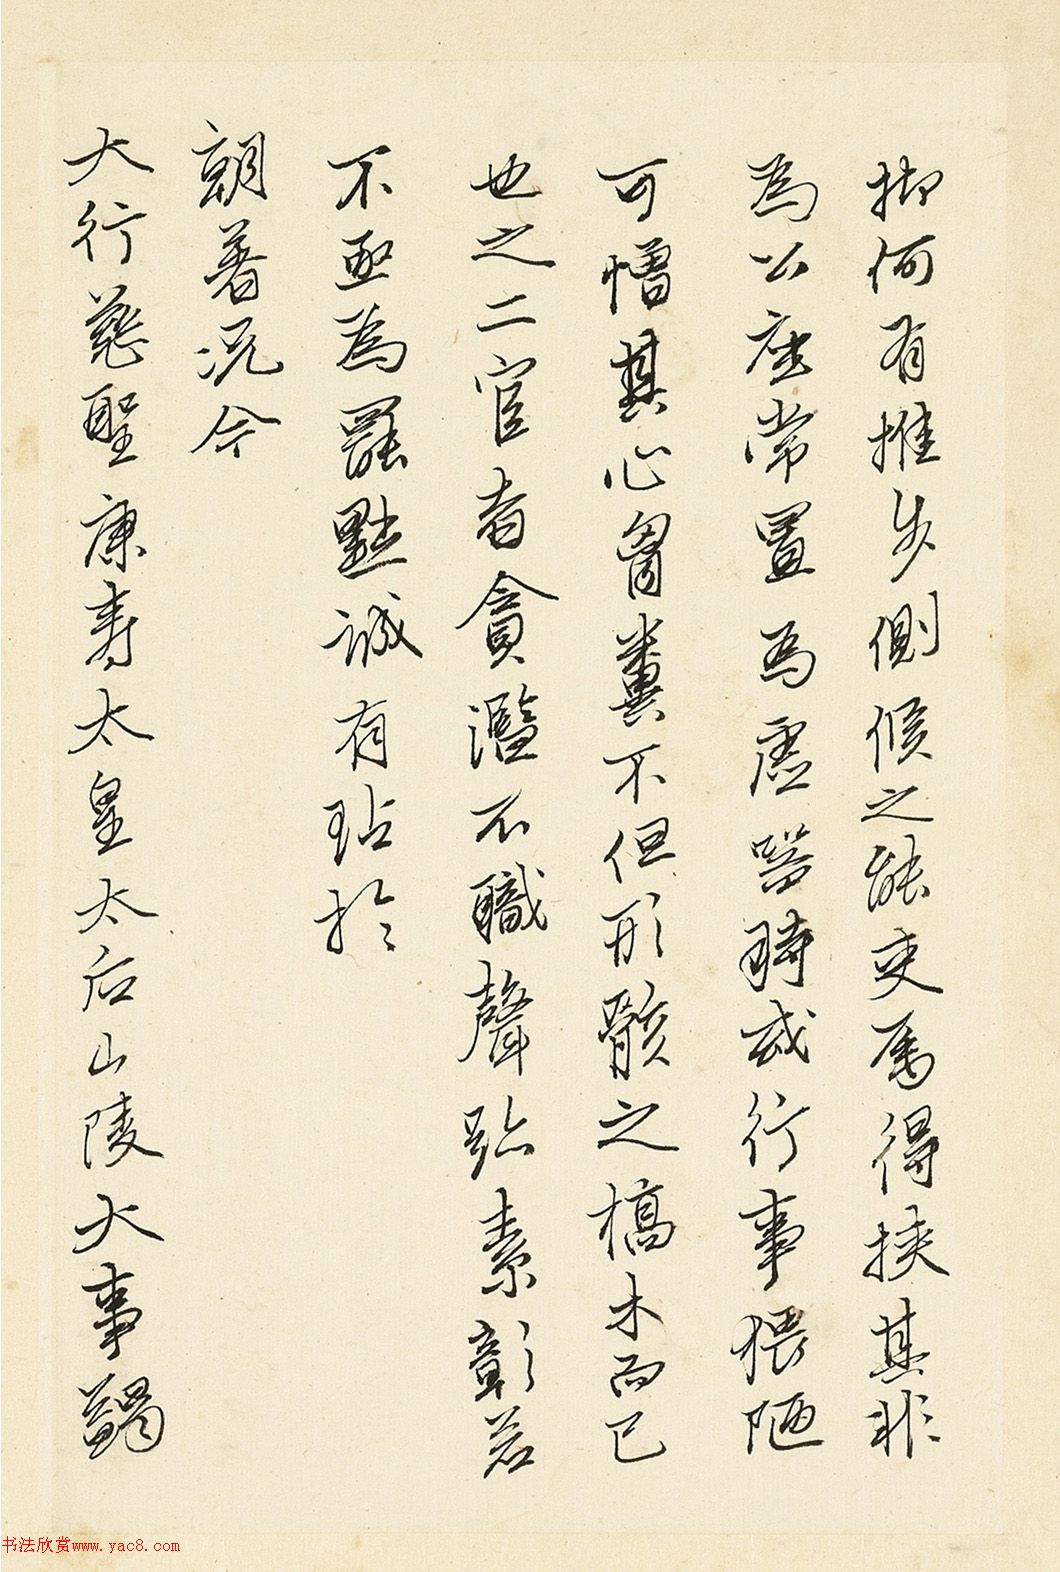 抑何有推步側候之能吏胥得挾其非
為公座常置為虛器時或行事猥陋
可憎其心胷糞不但形骸之槁木而已
也之二官者貪濫不職聲跡素彰若
不亟為罷黜誠有玷於
朝著況今
大行慈聖康壽太皇太后山陵大事蠲
书法欣赏www.yac8.com